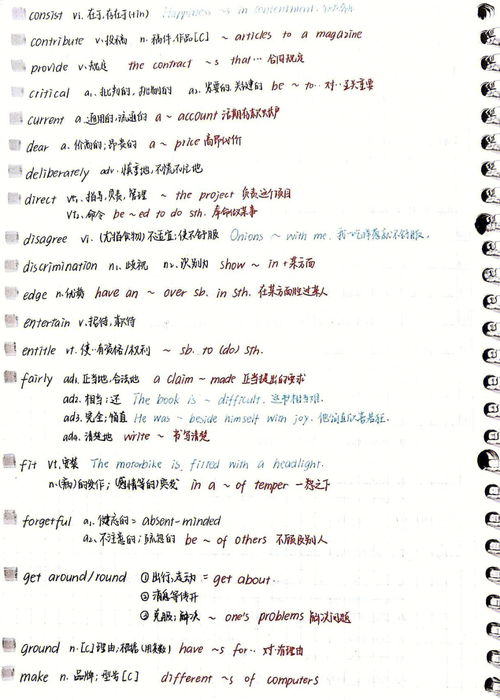 consist vi. 在于,存在于(+in) Happiness ~s in contentment.
contribute v.投稿 n. 稿件,作品[C] ~ articles to a magazine
provide v.规定 the contract ~s that… 合同规定
critical a1. 批判的,批判的 a2. 紧要的,关键的 be ~ to… 对…至关重要
current a.通用的,流通的 a ~ account 活期存款账户
dear a. 价高的;昂贵的 a ~ price 高昂代价
deliberately adv. 慎重地,不慌不忙地
direct vt1. 指导,负责,管理 ~ the project 负责这个项目
vt2. 命令 be ~ed to do sth. 奉命做某事
disagree vi. (尤指食物)不适宜;使不舒服 Onions ~ with me. 我一吃洋葱就不舒服.
discrimination n1. 歧视 n2. 识别力 show ~ in +某方面
edge n.优势 have an ~ over sb. in sth. 在某方面胜过某人
entertain v.招待,款待
entitle vt. 使…有资格/权利 ~ sb. to (do) sth.
fairly ad1. 正当地,合法地 a claim ~ made 正当提出的要求
ad2. 相当;还 The book is ~ difficult. 这书相当难.
ad3. 完全;简直 He was ~ beside himself with joy. 他简直欣喜若狂.
ad4. 清楚地 write ~ 书写清楚
fit vt.安装 The motorbike is fitted with a headlight.
n.(病)的发作;(感情等的)突发 in a ~ of temper 一怒之下
forgetful a1. 健忘的 = absent-minded
a2. 不注意的;疏忽的 be ~ of others 不顾及别人
get around/round ①出行,走动 = get about.
②消息等传开
③克服;解决 ~ one's problems 解决问题
ground n.[C]理由,根据(用复数) have ~s for… 对…有理由
make n. 品牌;型号[C] different ~s of computers